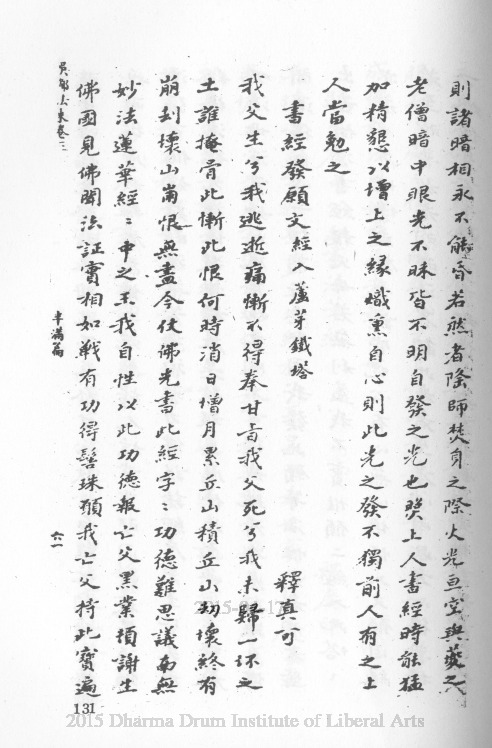 則諸暗相永不能昏若然者隆師焚身之際火光亘空與薆公
老僧暗中眼光不昧皆不明自發之光也煚上人書經時能猛
加精懇以增上之緣熾熏自心則此光之發不獨前人有之上
人當勉之
書經發願文經入蘆芽鐵塔
釋真可
我父生兮我逃逝痛慚不得奉甘旨我父死兮我未歸一抔之
土誰掩骨此慚此恨何時消日增月累丘山積丘山劫壞終有
崩刦壞山崩恨無盡今仗佛光書此經字〻功德難思議南無
妙法蓮華經〻中之王我自性以此功德報亡父黑業頓謝生
佛國見佛聞法証實相如戰有功得髻珠願我亡父持此寶遍
吳都法乘卷三
半滿篇
六一
131
2015 Dharma Drum Institute of Liberal Arts